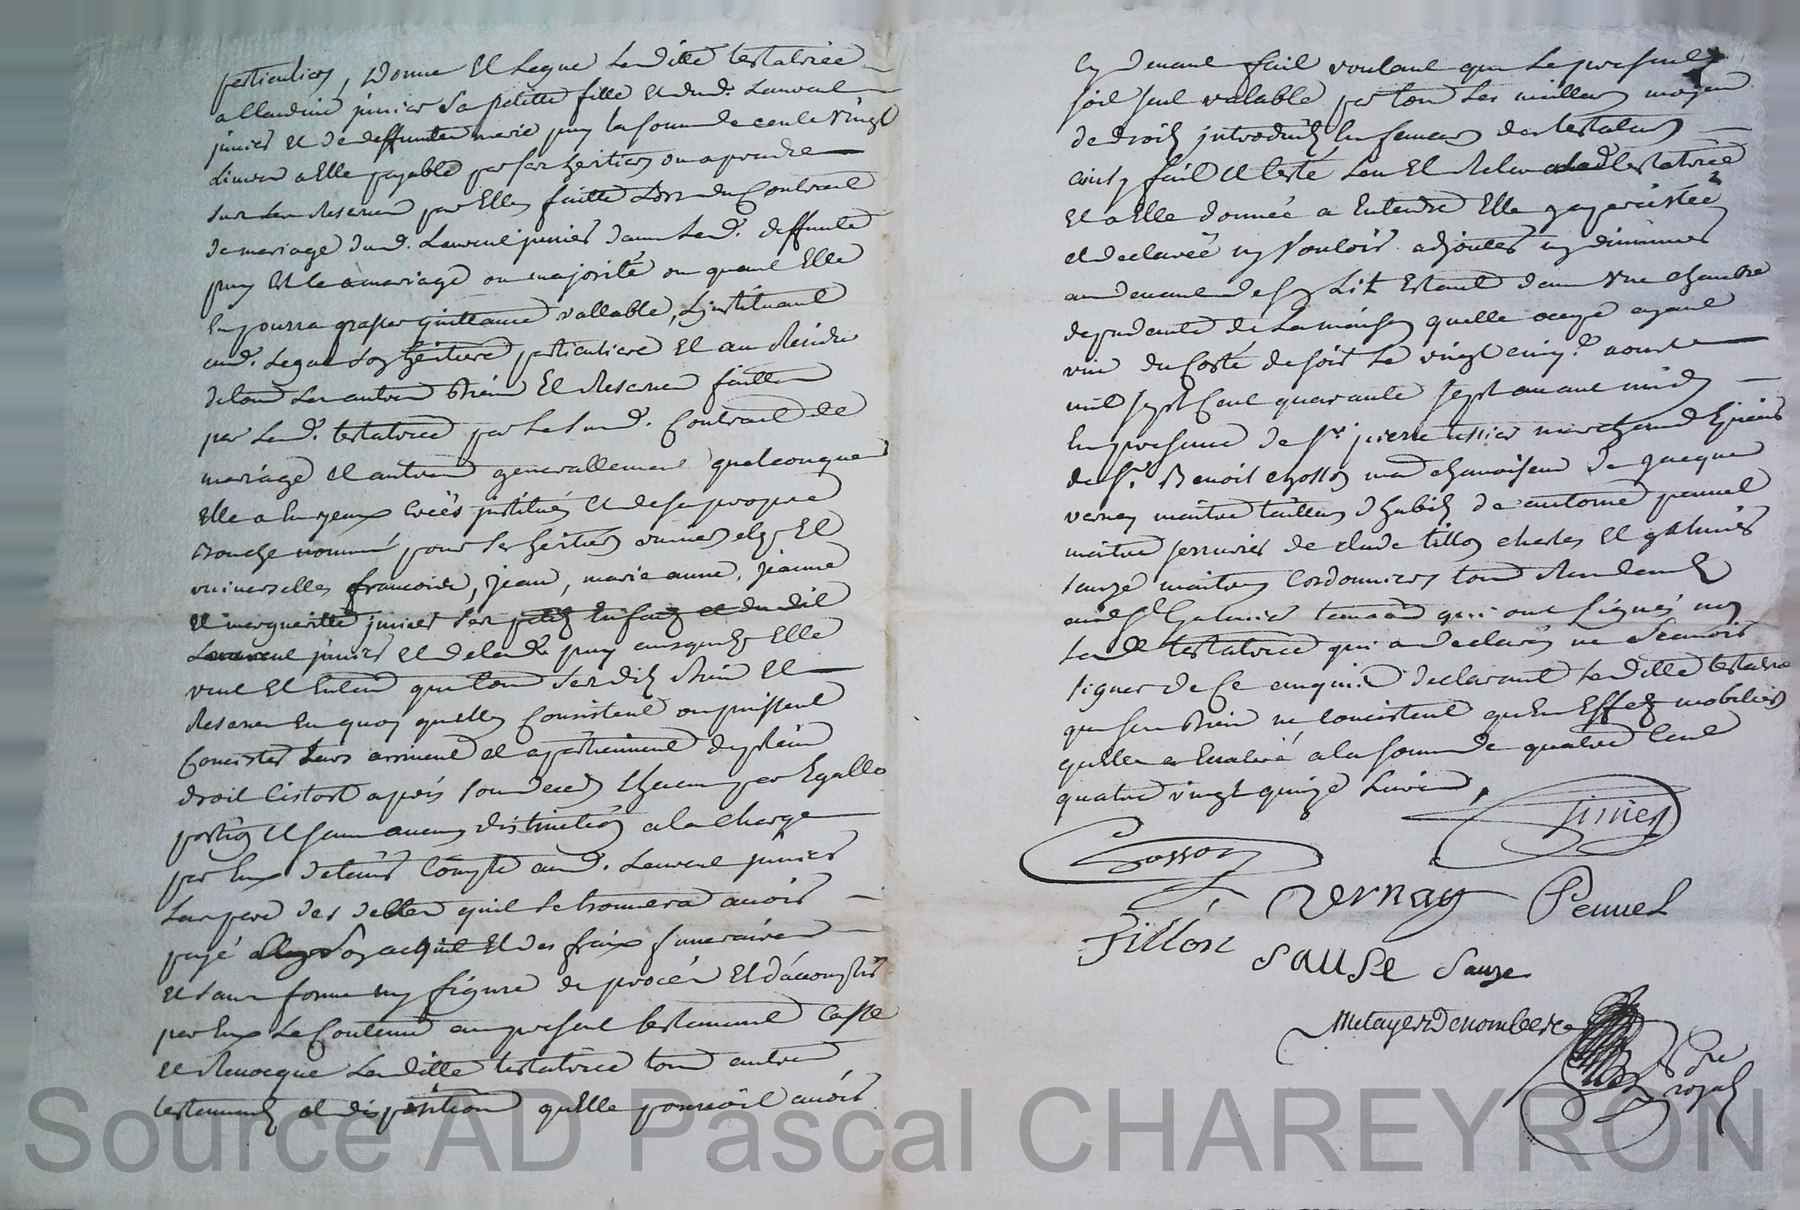 particuliers, donne et legue laditte testatrice
a claudine junier sa petitte fille et dud. Laurent
junier et de deffunte marie puy la somme de cent vingt
Livres a elle payable par ses heritiers ou a prendre
sur les reserves par elle faittes Lors du Contrait
de mariage dud. Laurent junier avec lad. deffunte
puy et ce a mariage ou majorité ou quant elle
en pourra passer quittance vallable, L'instituant
aud. Legat son heritiere particuliere et au Residu
de tous ses autres Biens et Reserves faittes
par lad. testatrice par le sud. Contrait de
mariage et autres generallement quelconques
elle a heureux creés institués et de sa propre
Bouche nommé pour ses heritiers
universelles francoise, jean, marie anne, jeanne
et margueritte junier ses petits enfants et dudit
Laurent junier et de lad. puy ausquels elle
veut et entend que tous sesdits Biens et
Reserves en quoy quelles Consistent ou puissent
Consister Leurs arrivent et apartiennent de plein
droit Cistost apres son deceds chacun par Egalle
portion et sans aucune distinction a la charge
par eux de tenir Compte aud. Laurent junier
Leur pere des dettes quil se trouvera avoir
payé a son acquit et des fraix funeraires
et sans forme ny figure de procés et d'accomplir
par eux le Contenu au present testament Casse
et Revocque Laditte testatrice tous autres
testaments et dispositions quelle pouroit avoir
cy devant fait voulant que le present
soit seul valable par tous les meilleurs moyens
de droits introduits en faveur des testateurs
ainsy fait et testé Leu et Releu a lad. testatrice
et a elle donnée a Entendre Elle y a percistée
et declarée ny vouloir adjouter ny diminuer
au devant de son Lit Estant dans une chambre
dependante de La maison quelle occupe ayant
vue du Costé de soir le vingt cinq aoust
mil sept Cent quarante sept avant midy
En presence de Sr. pierre marchand Epicier
de Sr. Benoit chosson md chamoiseur de jacques
vernay maitre tailleur d'habits de antoine pennel
maitre serrurier de claude tillon charles et galmier
sauze maitres Cordonniers tous
aud. St. Galmier temoins qui ont signés non
Lad. testatrice qui a declarée ne scavoir
signer de Ce enquise declarant Laditte testatrice
que ses Biens ne Concistent quen Effets mobiliers
quelle a Evalué a la somme de quatre Cent
quatre vingt quinze Livres,
vernay Pennel
Tillon sause Sauze
Metayer Denombre
Nre
royal
Source AD Pascal CHAREYRON